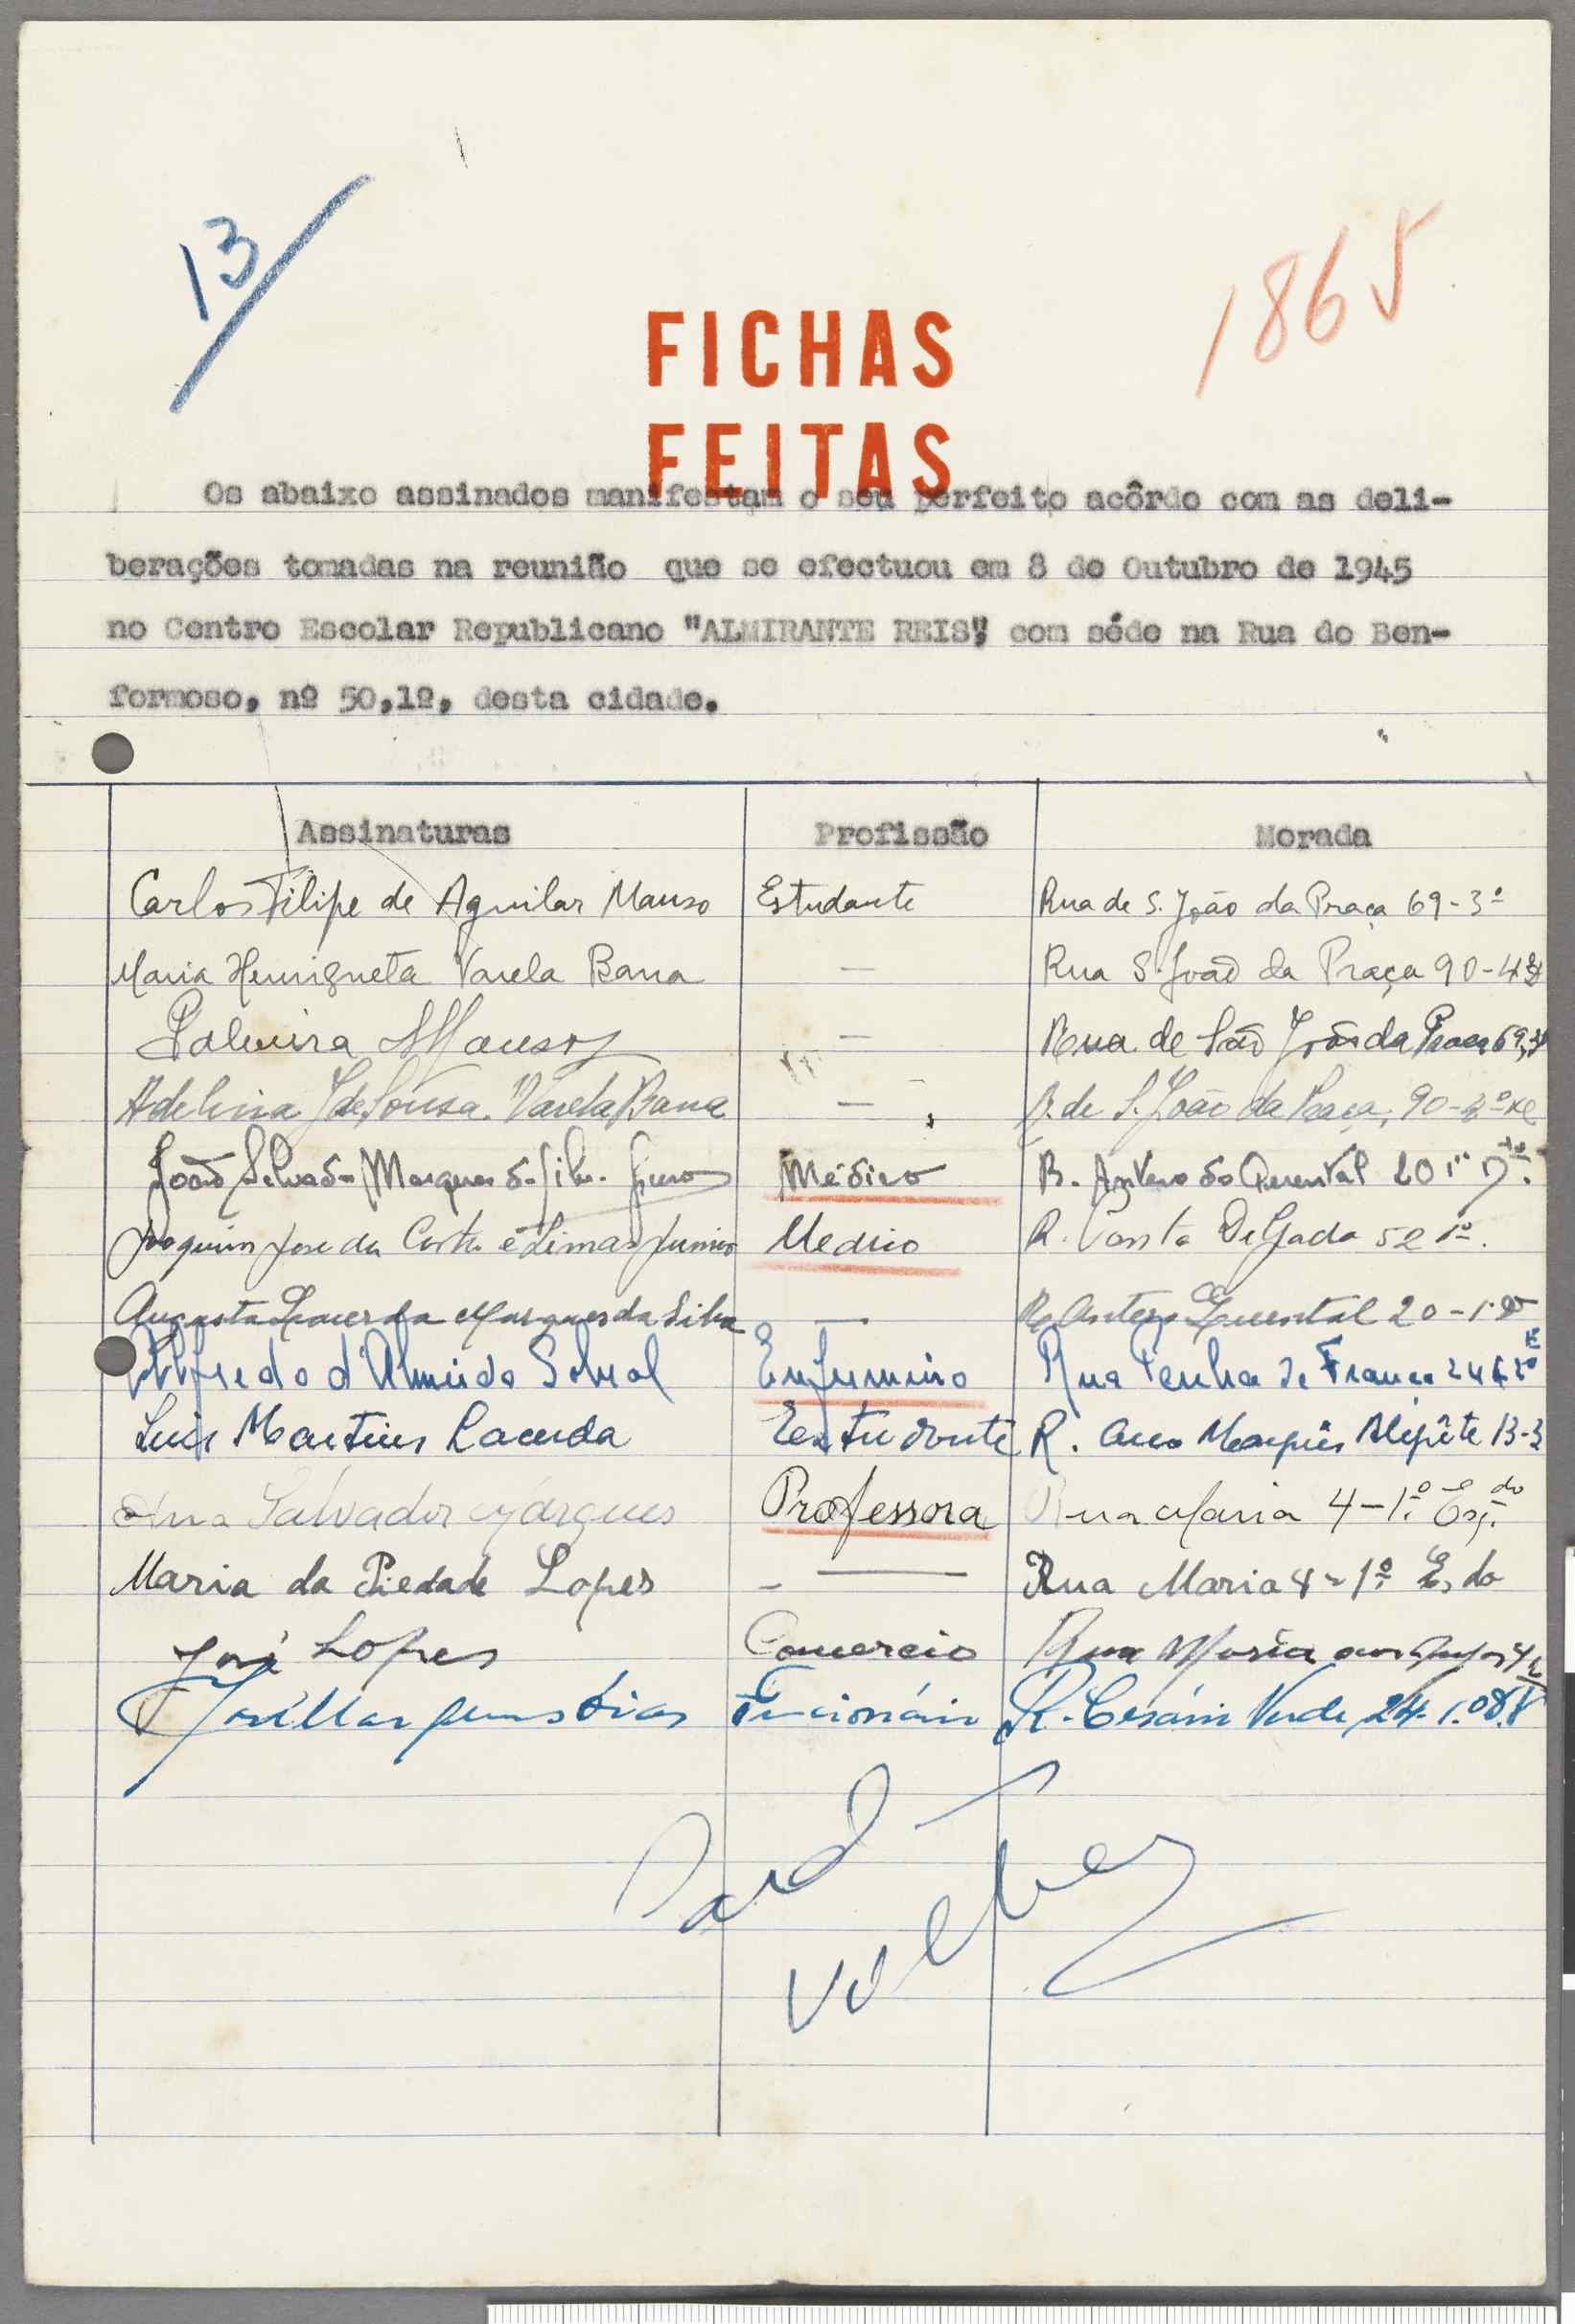 13
1865
FICHAS
FEITAS
Os abaixo assinados manifestam o seu perfeito acôrdo com as deli-
berações tomadas na reunião que se efectuou em 8 de Outubro de 1945
no Centro Escolar Republicano "ALMIRANTE REIS", com séde na Rua do Ben-
formoso, nº 50,1º, desta cidade.
Assinaturas Profissão Morada
Carlos Filipe de Aguilar Manso Estudante Rua de S. João da Praça 69-3º
Maria Henriqueta Varela Bana — Rua S. João da Praça 90-4º
Palmira Manso — Rua de São João da Praça 69,3º
Adelina J. de Sousa Varela Bana — R. de S. João da Praça, 90-2º
João Salvador Marques da Silva Médico R. Antero do Quental 20 1º D.to
Joaquim José da Costa e Lima Junior Medico R. Ponta Delgada 52 1º.
Augusta Lacerda Marques da Silva — R. Antero Quental 20-1º
Alfredo d'Almeida Sobral Enfermeiro Rua Penha de França
Luis Martins Lacerda Estudante R. Marquês Alegrête 13-3
Ana Salvador Marques Professora Rua Maria 4-1.º Esq.do
Maria da Piedade Lopes — Rua Maria 4-1º
José Lopes Comercio Rua Maria 4
José Marques Dias Funcionário R. Cesário Verde, 24-1.º